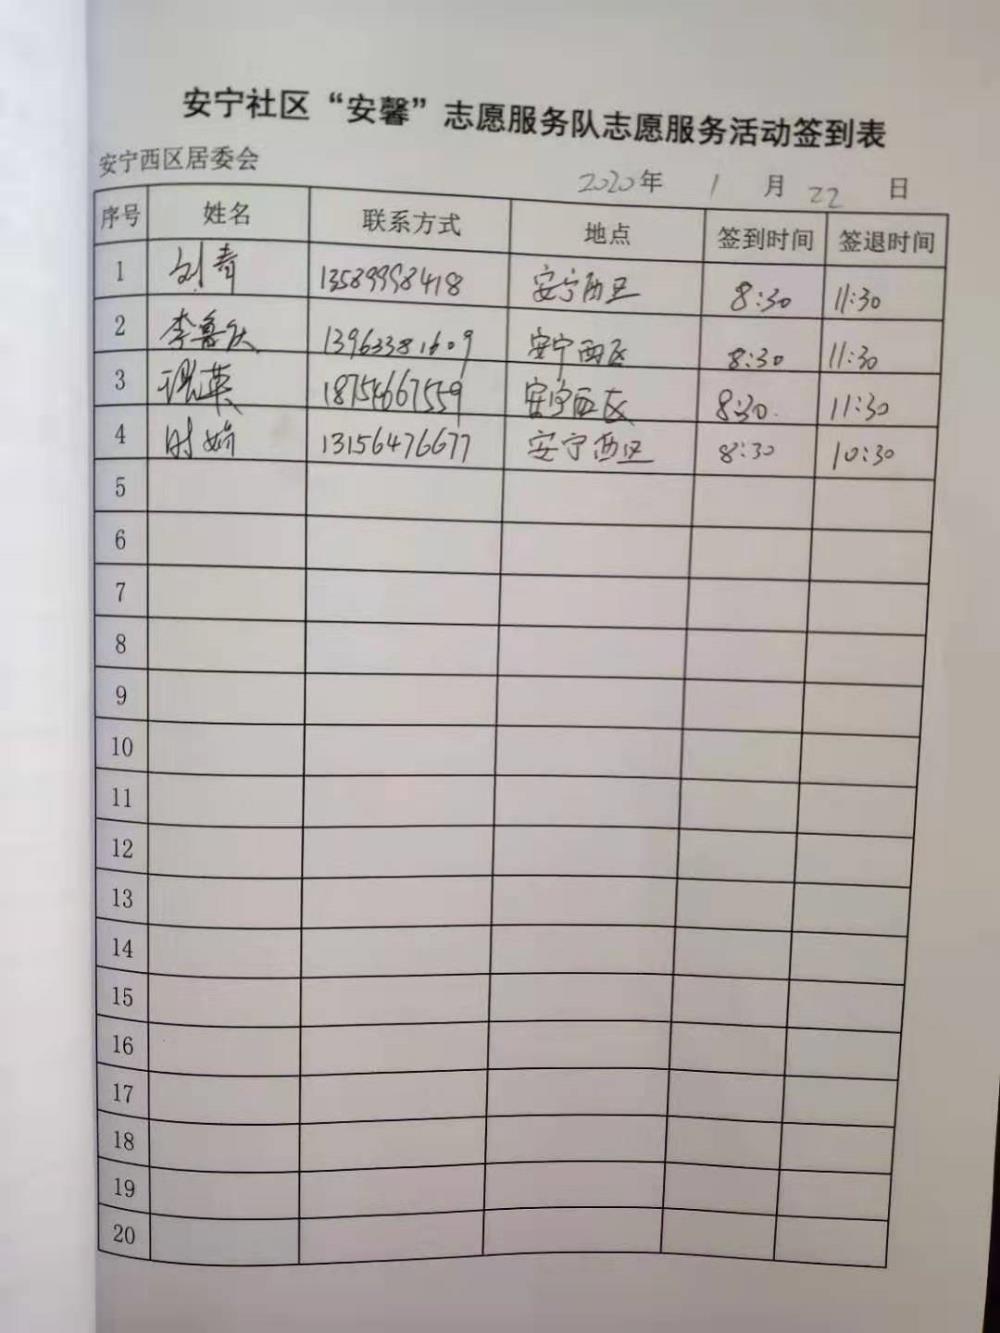 安宁社区“安馨”志愿服务队志愿服务活动签到表
安宁西区居委会 2020年 1 月 22 日
序号 姓名 联系方式 地点 签到时间 签退时间
1 刘青 13589998418 安宁西区 8:30 11:30
2 李鲁庆 13963381609 安宁西区 8:30 11:30
3 英 18754667559 安宁西区 8:30 11:30
4 时娇 13156476677 安宁西区 8:30 10:30
5
6
7
8
9
10
11
12
13
14
15
16
17
18
19
20